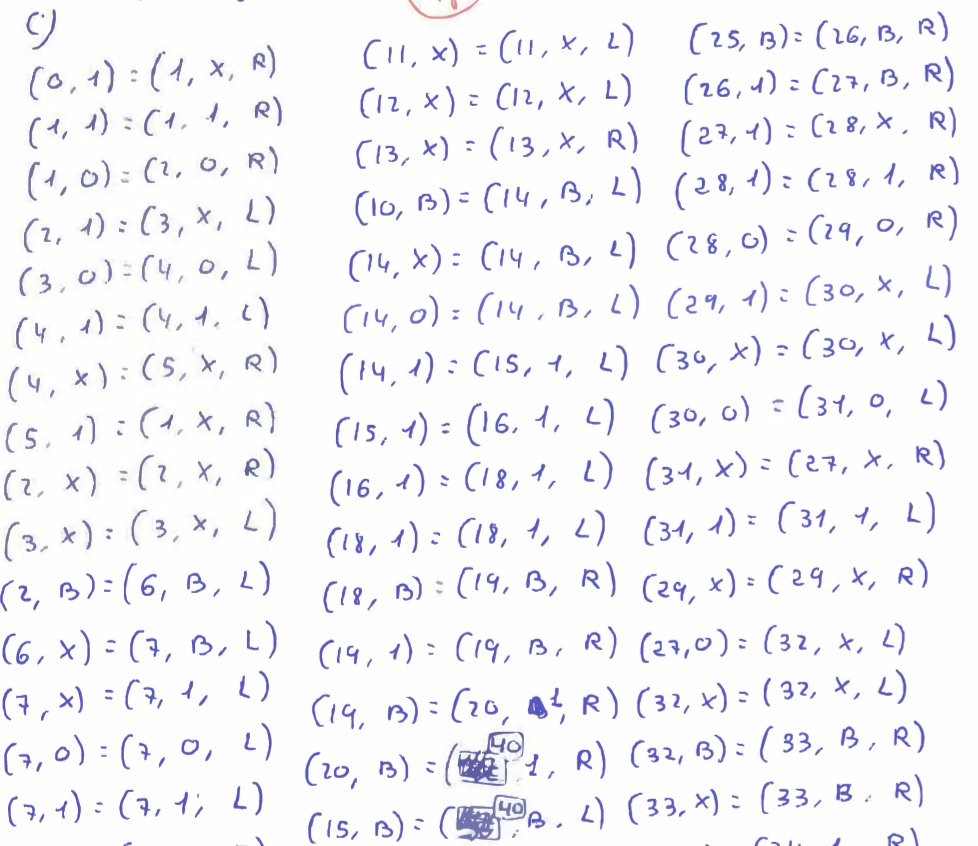 C)
(0, 1) = (1, X, R)
(1, 1) = (1, 1, R)
(1, 0) = (2, 0, R)
(2, 1) = (3, X, L)
(3, 0) = (4, 0, L)
(4, 1) = (4, 1, L)
(4, X) = (5, X, R)
(5, 1) = (1, X, R)
(2, X) = (2, X, R)
(3, X) = (3, X, L)
(2, B) = (6, B, L)
(6, X) = (7, B, L)
(7, X) = (7, 1, L)
(7, 0) = (7, 0, L)
(7, 1) = (7, 1, L)
(11, X) = (11, X, L)
(12, X) = (12, X, L)
(13, X) = (13, X, R)
(10, B) = (14, B, L)
(14, X) = (14, B, L)
(14, 0) = (14, B, L)
(14, 1) = (15, 1, L)
(15, 1) = (16, 1, L)
(16, 1) = (18, 1, L)
(18, 1) = (18, 1, L)
(18, B) = (19, B, R)
(19, 1) = (19, B, R)
(19, B) = (20, 1, R)
(20, B) = (40, 1, R)
(15, B) = (40, B, L)
(25, B) = (26, B, R)
(26, 1) = (27, B, R)
(27, 1) = (28, X, R)
(28, 1) = (28, 1, R)
(28, 0) = (29, 0, R)
(29, 1) = (30, X, L)
(30, X) = (30, X, L)
(30, 0) = (31, 0, L)
(31, X) = (27, X, R)
(31, 1) = (31, 1, L)
(29, X) = (29, X, R)
(27, 0) = (32, X, L)
(32, X) = (32, X, L)
(32, B) = (33, B, R)
(33, X) = (33, B, R)